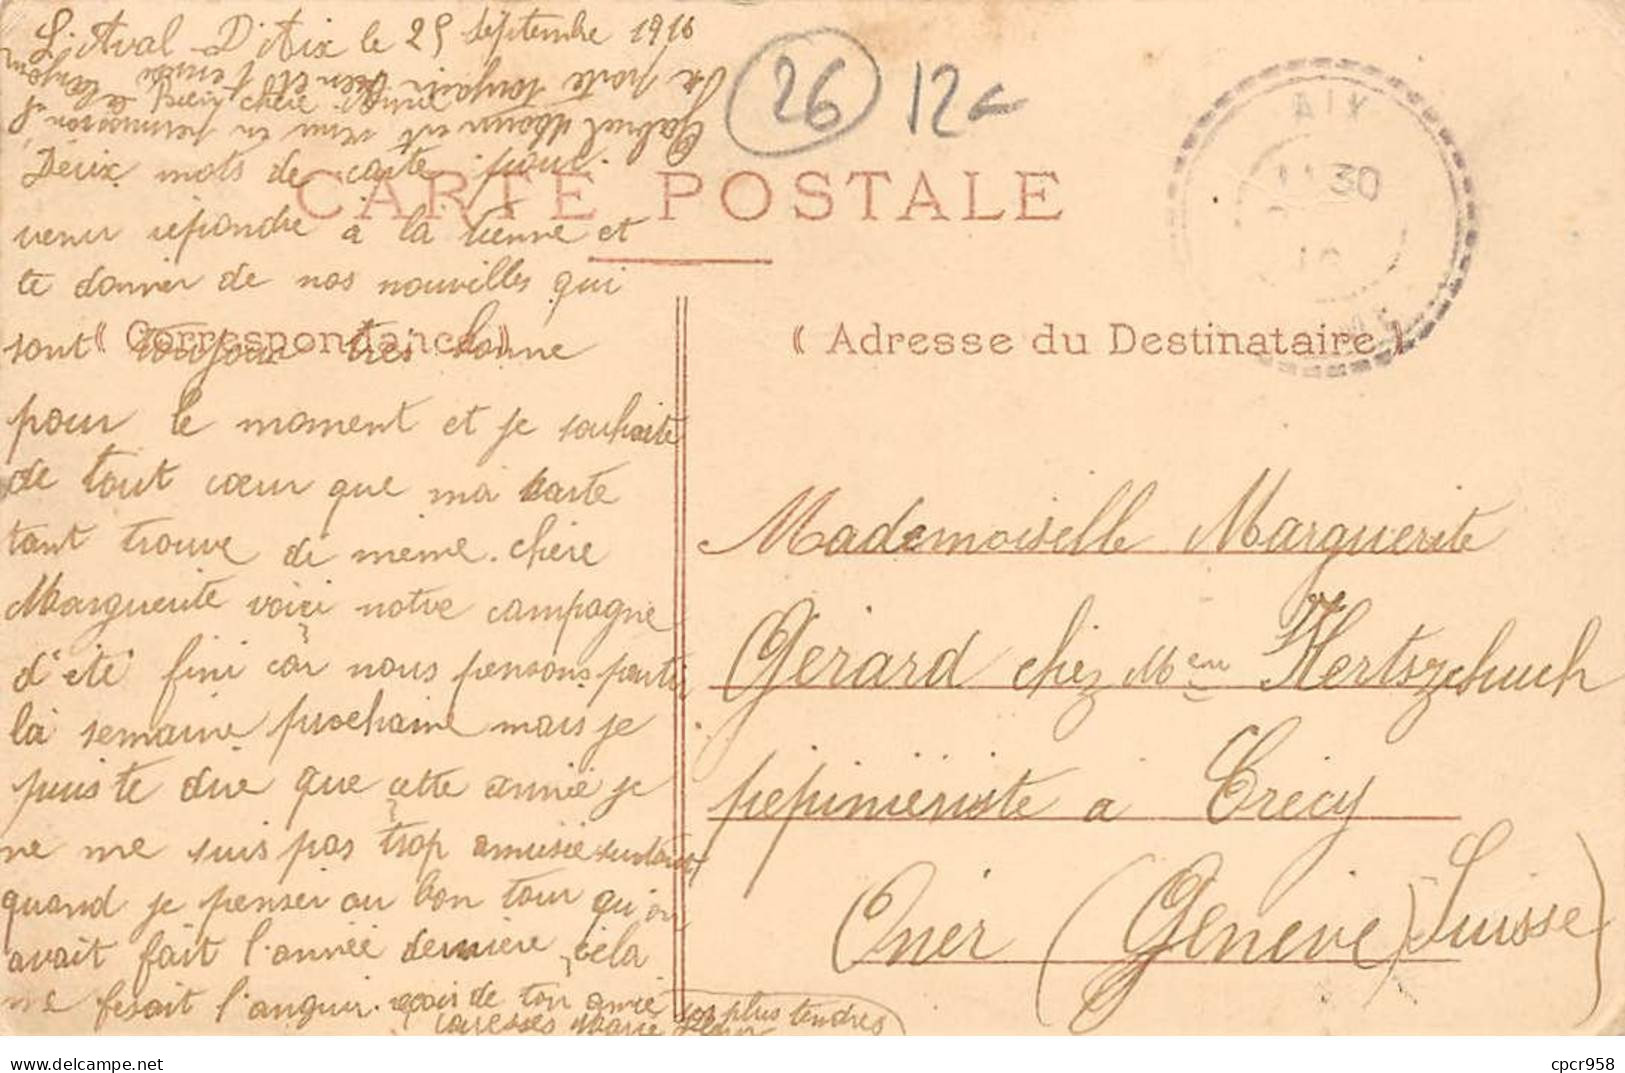 L'Aval D'Aix le 25 septembre 1916
Bien chère Amie
Deux mots de carte pour
venir répondre à la tienne et
te donner de nos nouvelles qui
sont toujour très bonne
pour le moment et je souhaite
de tout cœur que ma carte
tant trouve de même. chère
Marguerite voici notre campagne
d'été fini car nous pensons partir
la semaine prochaine mais je
puis te dire que cette année je
ne me suis pas trop amusée surtout
quand je penser au bon tour qu'on
avait fait l'année dernière cela
me fesait l'anguir. reçois de ton amie
ses plus tendres
caresses Marie
Gabriel
se porte toujour bien et
26
12€
CARTE POSTALE
« Correspondance »
« Adresse du Destinataire »
AIX
11 30
Mademoiselle Marguerite
Gérard chez Meur Hertszchuch
pépiniériste à Crécy
Oner (Genève) Suisse)
cpcr958